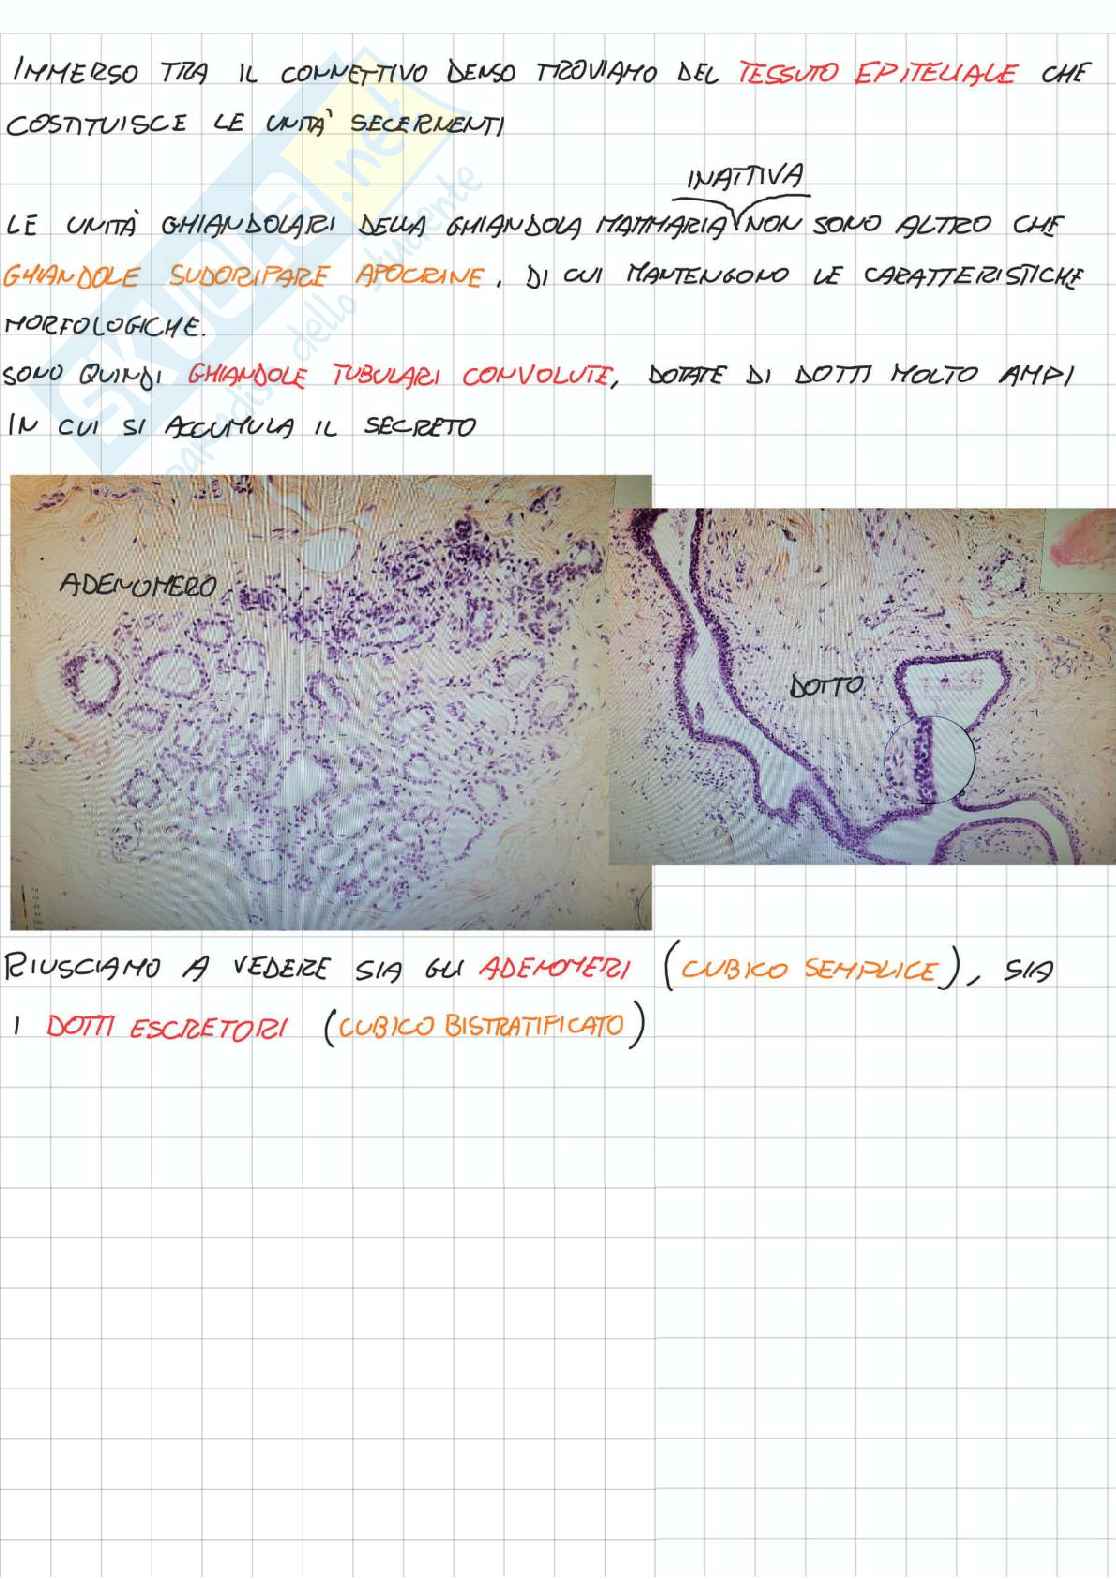 IMMERSO TRA IL CONNETTIVO DENSO TROVIAMO DEL TESSUTO EPITELIALE CHE
COSTITUISCE LE UNITÀ SECERNENTI
INATTIVA
LE UNITÀ GHIANDOLARI DELLA GHIANDOLA MAMMARIA NON SONO ALTRO CHE
GHIANDOLE SUDORIPARE APOCRINE, DI CUI MANTENGONO LE CARATTERISTICHE
MORFOLOGICHE.
SONO QUINDI GHIANDOLE TUBULARI CONVOLUTE, DOTATE DI DOTTI MOLTO AMPI
IN CUI SI ACCUMULA IL SECRETO
SKUOLA.net
paradiso dello studente
ADENOMERO
DOTTO
RIUSCIAMO A VEDERE SIA GLI ADENOMERI (CUBICO SEMPLICE), SIA
I DOTTI ESCRETORI (CUBICO BISTRATIFICATO)